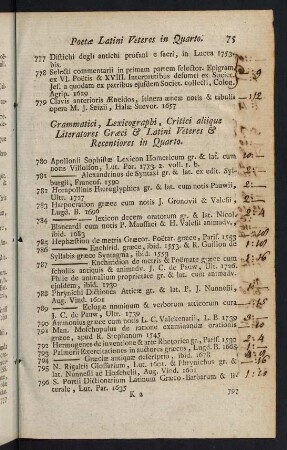 Poetæ Latini Veteres in Quarto. 75
777 Distichi degli antichi profani e sacri, in Lucca 1753.
bis.
778 Selecti commentarii in primam partem selector. Epigram.
ex VI. Poëtis & XVIII. Interpretibus desumti ex Societ.
Jes. a quodam ex patribus ejusdem Societ. collecti, Colon.
Agrip. 1620
779 Clavis anterioris Æneidos, itinera æneæ notis & tabulis
opera M. J. Seizii, Halæ Suevor. 1657
Grammatici, Lexicographi, Critici aliique
Literatores Græci & Latini Veteres &
Recentiores in Quarto.
780 Apollonii Sophistæ Lexicon Homericum gr. & lat. cum
nota Villoison, Lut. Par. 1773. 2. voll. 1. b.
781 —— Alexandrinus de Syntaxi gr. & lat. ex edit. Syl-
burgii, Francof. 1590
782 Horapollinis Hieroglyphica gr. & lat. cum notis Pauwii,
Ultr. 1727
783 Harpocration græce cum notis J. Gronovii & Valesii,
Lugd. B. 1696
784 —— lexicon decem oratorum gr. & lat. Nicol.
Blancardi cum notis P. Maussaci & H. Valesii animadv.
ibid. 1683
785 Hephæstion de metris Græcor. Poëtar. græce, Paris. 1553
786 —— Enchirid. græce, ibid. 1553. & R. Guillon de
Syllabis græce Syntagma, ibid. 1553
787 —— Enchiridion de metris & Poëmate græce cum
scholiis antiquis & animadv. J. C. de Pauw, Ult. 1726.
Phile de animalium proprietate gr. & lat. cum animadv.
ejusdem, ibid. 1730
788 Phrynichi Dictiones Atticæ gr. & lat. P. J. Nunnesii,
Aug. Vind. 1601
789 —— Eclogæ nominum & verborum atticorum cura
J. C. de Pauw, Ult. 1739
790 Ammonius græce cum notis L. C. Valckenarii, L. B. 1739
791 Man. Moschopulus de ratione examinandæ orationis
græce, apud R. Stephanum 1545
792 Hermogenes de inventione & arte Rhetorica gr. Paris. 1530
793 Palmerii Exercitationes in auctores græcos, Lugd. B. 1668
794 —— Græciæ antiquæ descriptio, ibid. 1678
795 N. Rigaltii Glossarium, Lut. 1601. & Phrynichus gr. &
lat. Nunnesii ac Hoschelii, Aug. Vind. 1601
796 S. Portii Dictionarium Latinum Græco-Barbarum & lit-
terale, Lut. Par. 1635
K 2
797